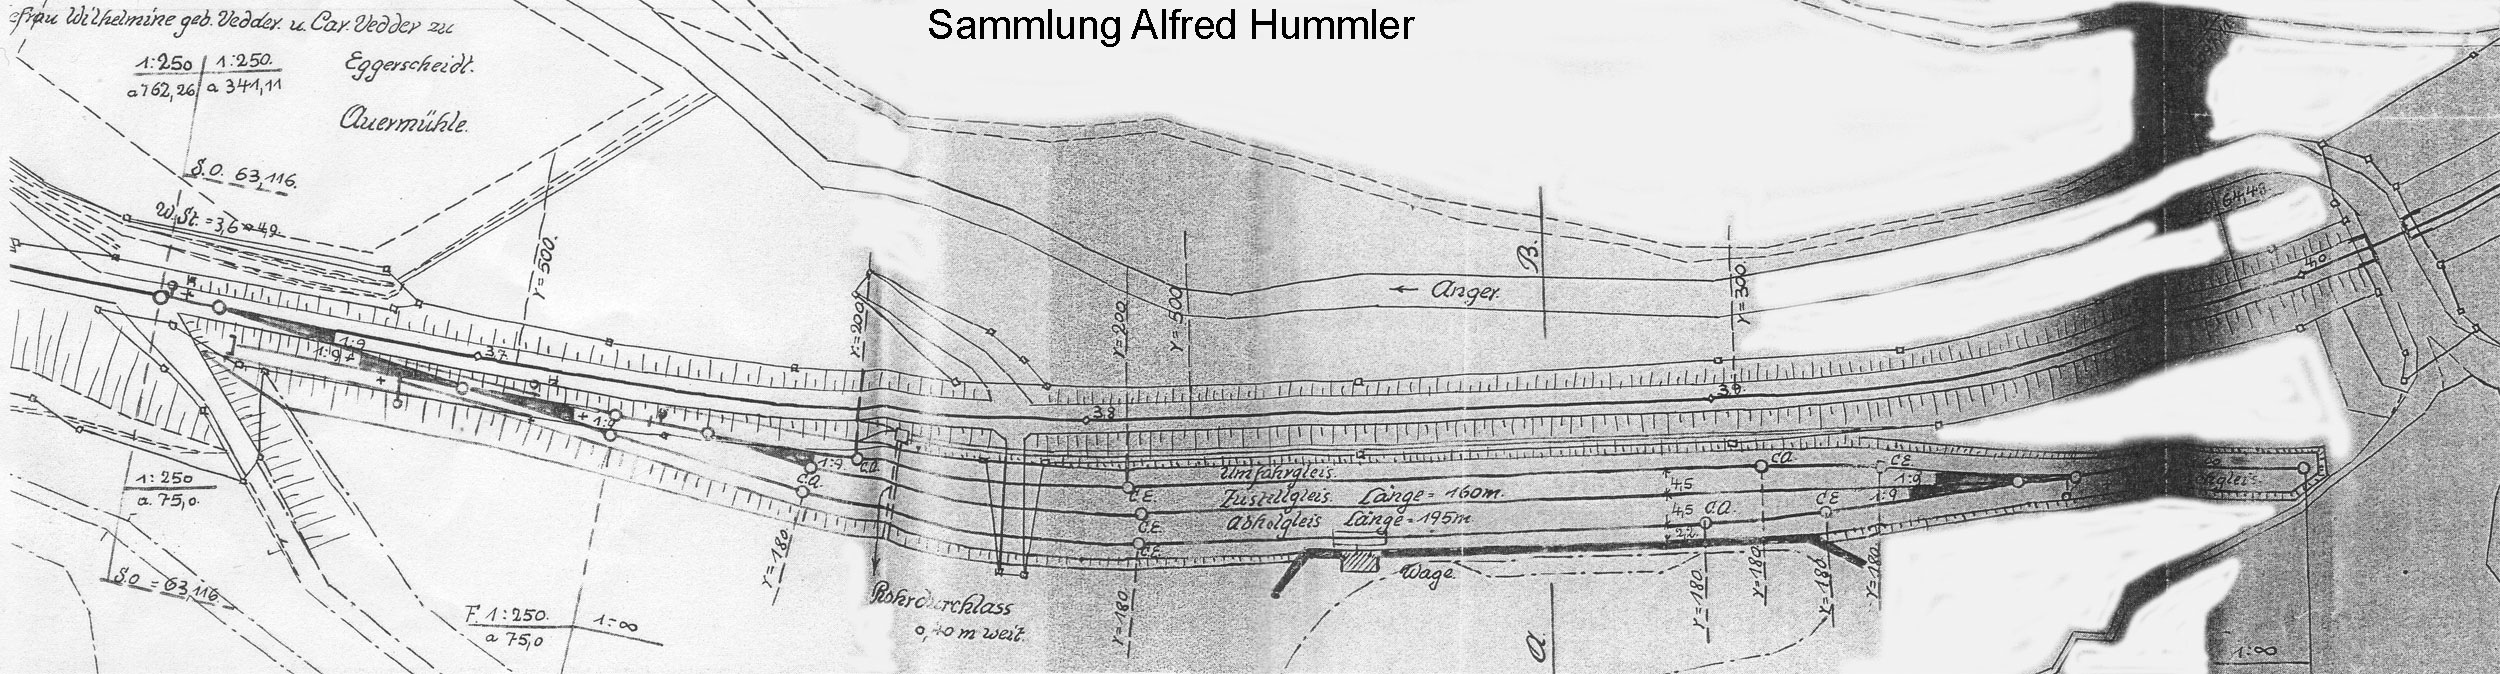 Sammlung Alfred Hummler
efrau Wilhelmine geb. Vedder. u. Car. Vedder zu
Eggerscheidt.
Auermühle.
1:250 1:250.
a 762,26 a 341,11
S.O. 63,116.
W. St. = 3,6
r=500.
r=200
r=200
r=500
B.
r=300.
← Anger.
1:9
1:9
3.7
1:9
1:9
C.A.
C.A.
3.8
3.9
4.0
Umfahrgleis.
C.A.
C.E.
C.E.
Zustellgleis. Länge = 160m.
4,5
1:9
1:9
C.E.
Abholgleis Länge = 195m
4,5
C.A.
C.E.
C.E.
2,2
Wage.
1:250
a. 75,0.
S.O = 63,116.
F. 1:250. 1:∞
a 75,0
r=180.
Rohrdurchlass
0,40 m weit.
r=180
r=180.
r=180.
r=180.
r=180.
a.
1:∞